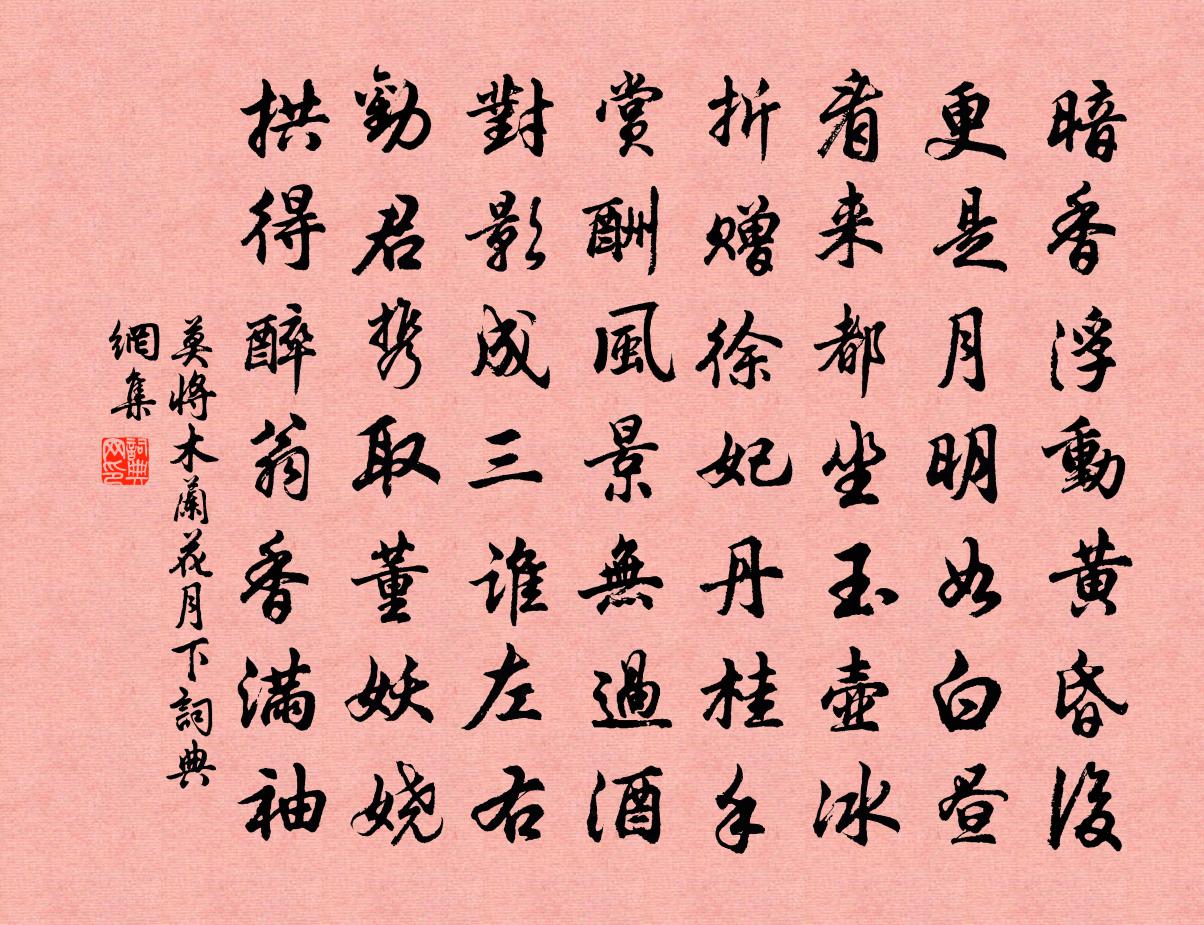 暗香浮動黄昏後
更是月明如白昼
看来都坐玉壺冰
折贈徐妃丹桂手
賞酬風景無過酒
對影成三谁左右
勸君携取董妖娆
拱得醉翁香滿袖
莫將木蘭花月下詞典
網集
詞典
网印